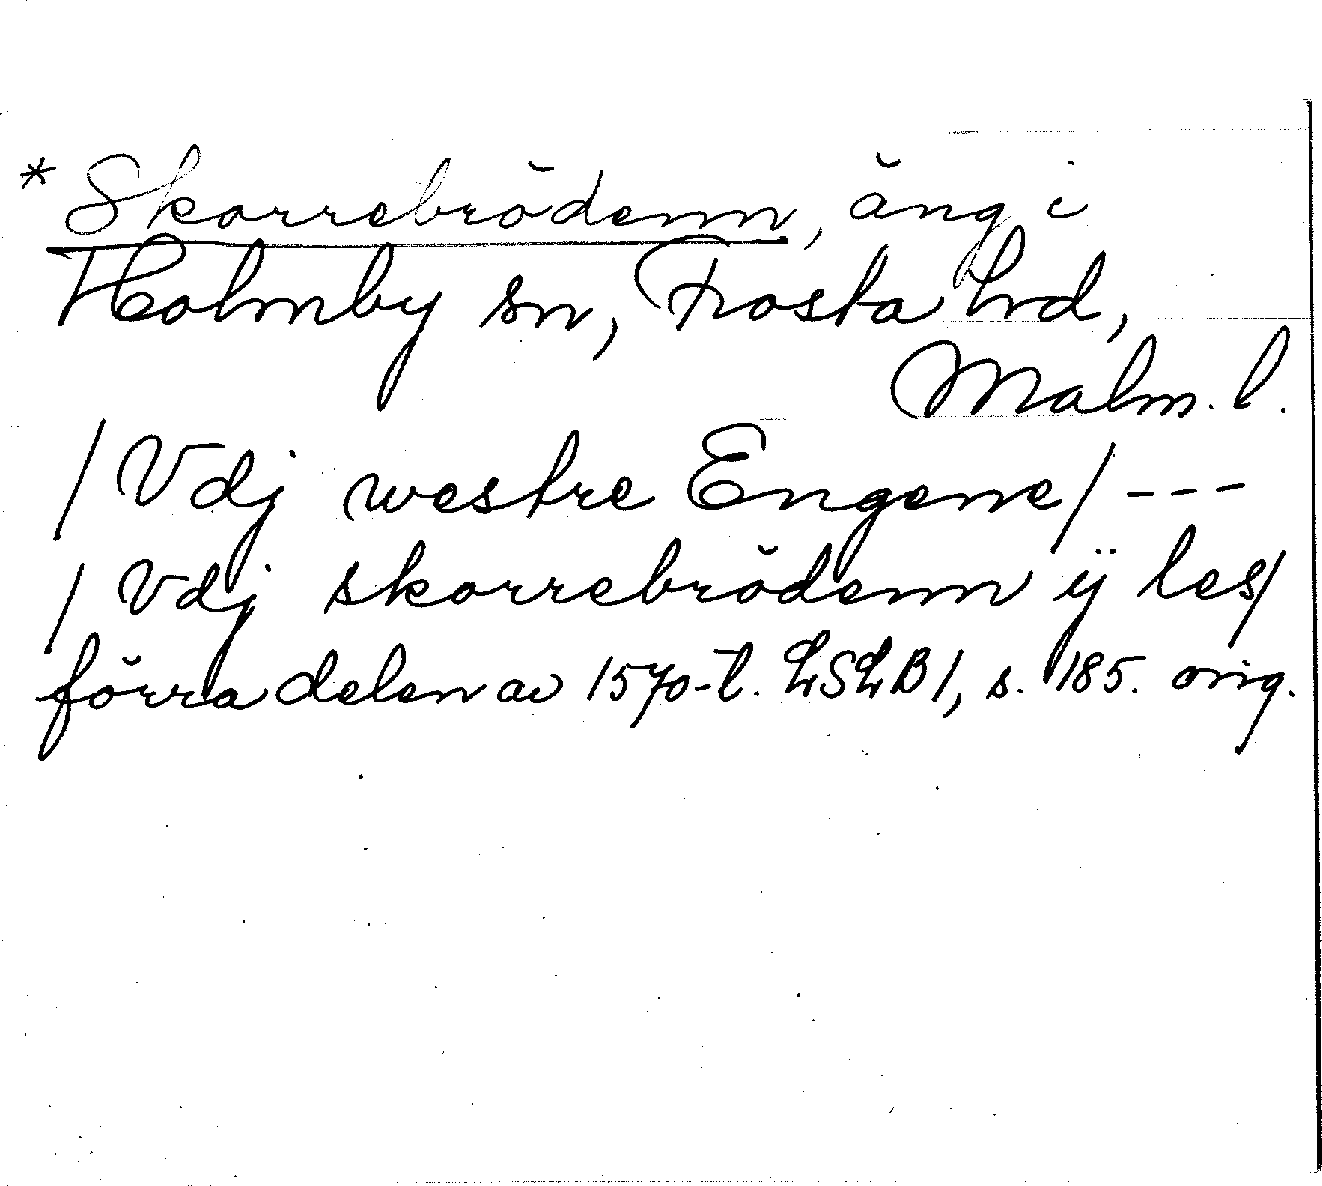 * Skorrebrödenn, äng i
Holmby sn, Frosta hrd,
Malm. l.
/Vdj westre Engene/ ---
/Vdj skorrebrödenn ÿ les/
förra delen av 1570-t. LSLB 1, s. 185. orig.